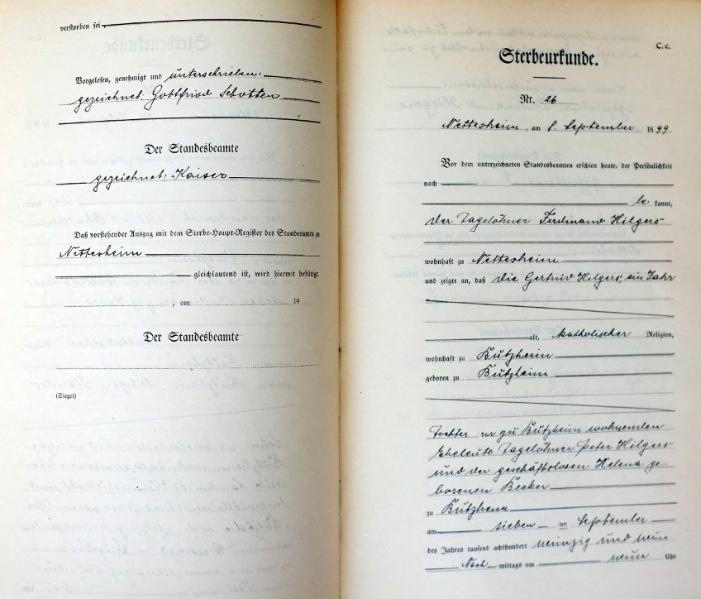 verstorben sei
Vorgelesen, genehmigt und unterschrieben.
gezeichnet: Gottfried Schotten
Der Standesbeamte
gezeichnet: Kaiser
Daß vorstehender Auszug mit dem Sterbe-Haupt-Register des Standesamts zu
Nettersheim
gleichlautend ist, wird hiermit bestätigt.
, am 19
Der Standesbeamte
(Siegel)
C.c.
Sterbeurkunde.
Nr. 26
Nettersheim, am 8. September 1899.
Vor dem unterzeichneten Standesbeamten erschien heute, der Persönlichkeit
nach
be kannt,
der Tagelöhner Ferdinand Hilgers
wohnhaft zu Nettersheim
und zeigte an, daß die Gertrud Hilgers, ein Jahr
alt, katholischer Religion,
wohnhaft zu Bützheim
geboren zu Bützheim
Tochter der zu Bützheim wohnenden
Eheleute Tagelöhner Peter Hilgers
und der geschäftslosen Helena ge-
borenen Becker
zu Bützheim
am sieben ten September
des Jahres tausend achthundert neunzig und neun
Nach mittags um neun Uhr